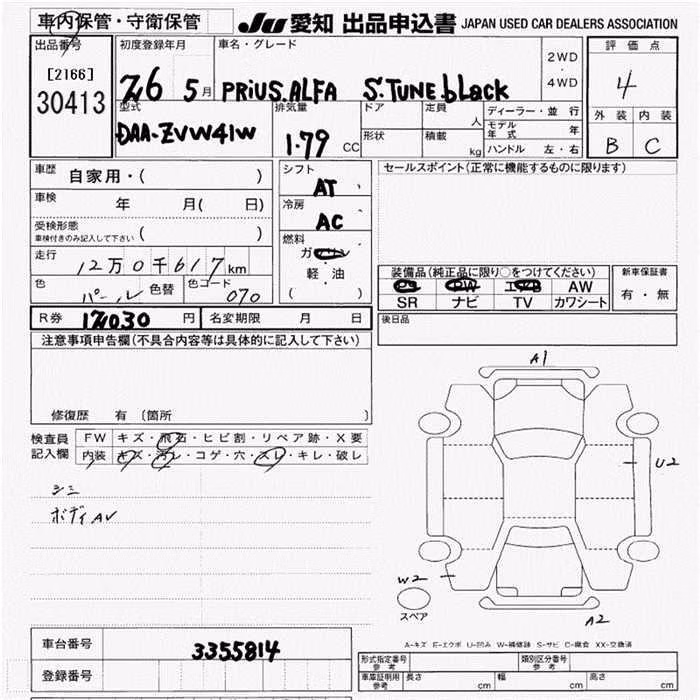 車内保管・守衛保管
JU 愛知 出品申込書 JAPAN USED CAR DEALERS ASSOCIATION
出品番号
[2166]
30413
初度登録年月 車名・グレード
26 5月 PRIUS.ALFA S.TUNE black
2WD
・
4WD
評価点
4
外装 内装
B C
型式
DAA-ZVW41W
排気量
1.79 CC
ドア 定員 人
形状 積載 kg
ディーラー・並行
モデル年式 年
ハンドル 左・右
車歴 自家用・( )
車検 年 月( 日)
受検形態
車検付きのみ記入して下さい ( )
走行 12万0千617km
色 パール 色替 色コード 070
シフト
AT
冷房
AC
燃料
ガソリン
軽・油
( )
セールスポイント(正常に機能するものに限ります)
装備品(純正品に限り○をつけてください)
PS PW エアB AW
SR ナビ TV カワシート
新車保証書
有・無
R券 12030 円 名変期限 月 日
後日品
注意事項申告欄(不具合内容等は具体的に記入して下さい)
修復歴 有(箇所 )
検査員
記入欄
FW キズ・飛石・ヒビ割・リペア跡・X要
内装 キズ・汚レ・コゲ・穴・スレ・キレ・破レ
シミ
ボディAV
A1
U2
W2
A2
スペア
A-キズ E-エクボ U-凹み W-補修跡 S-サビ C-腐食 XX-交換済
車台番号 3355814
登録番号
形式指定番号
参考
類別区分番号
参考
車庫証明用
参考
長さ cm 幅 cm 高さ cm